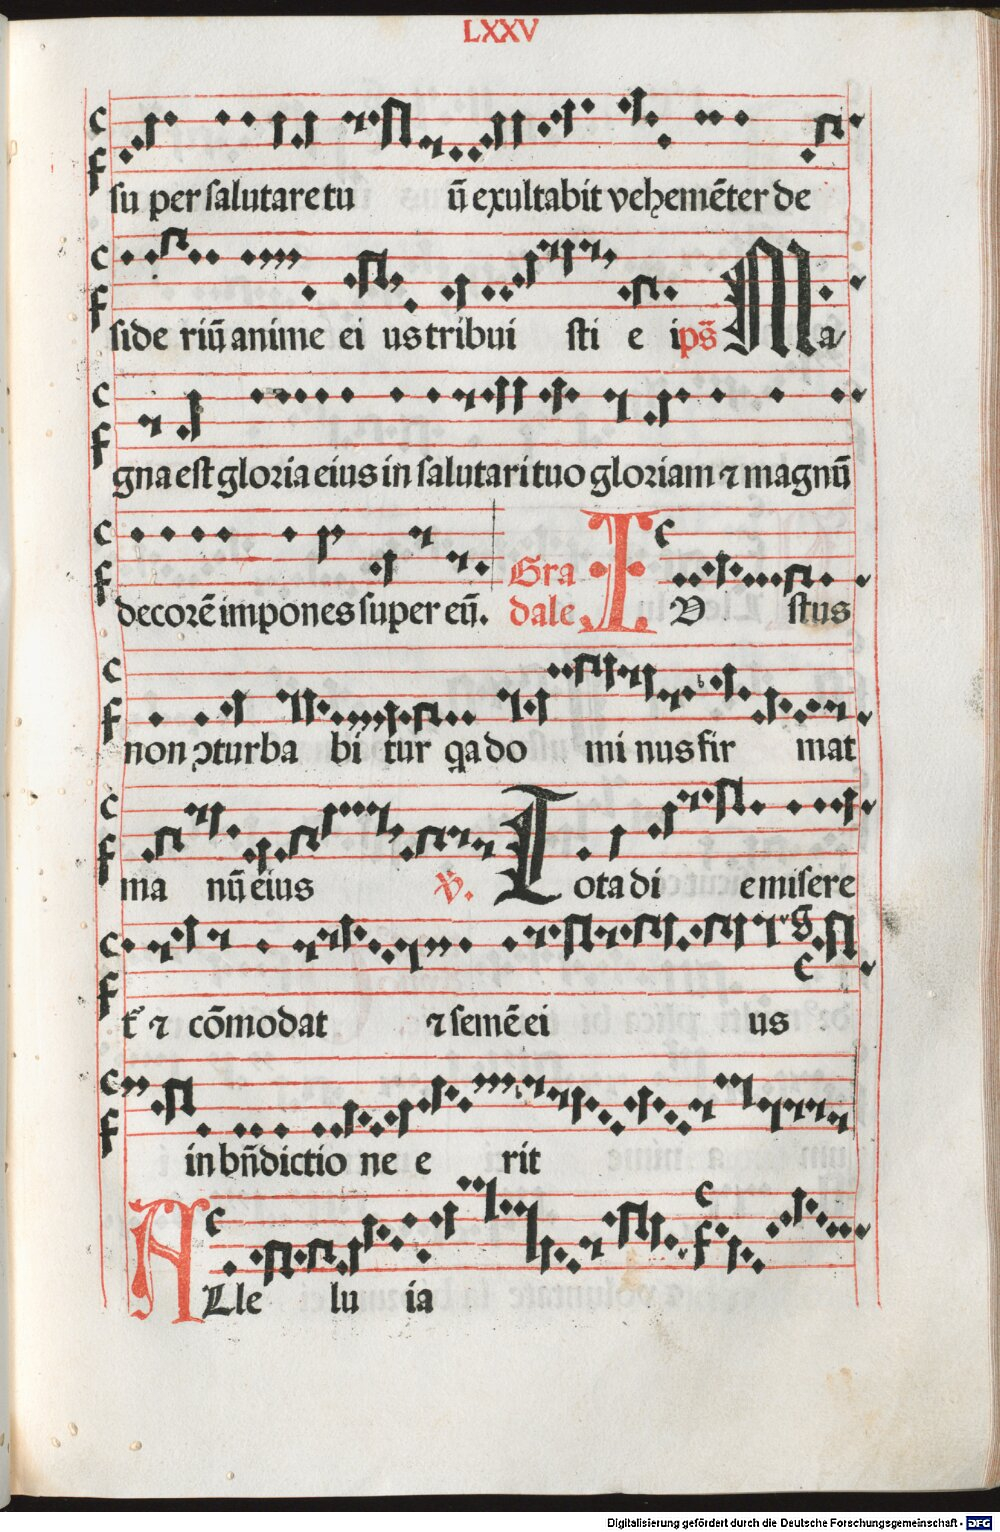 LXXV
su per salutare tu ū exultabit vehemēter de
side riū anime ei us tribui sti e i ps̄ Ma
gna est gloria eius in salutari tuo gloriam ⁊ magnū
decorē impones super eū. Gradale IV stus
non ꝯturba bit tur qa do mi nus fir mat
ma nū eius ℣. Tota di e misere
t᷑ ⁊ cōmodat ⁊ semē ei us
in bn̄dictio ne e rit
ALle lu ia
Digitalisierung gefördert durch die Deutsche Forschungsgemeinschaft - DFG